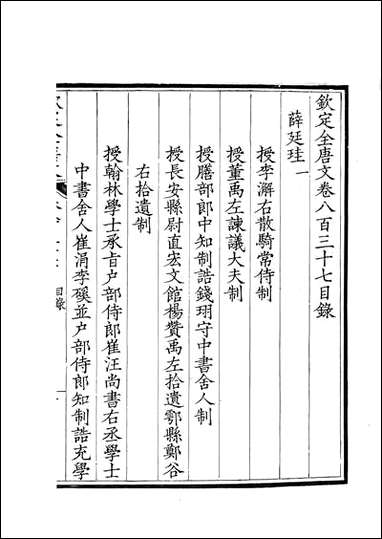 欽定全唐文卷八百三十七目錄
薛廷珪一
授李瀣右散騎常侍制
授董禹左諫議大夫制
授膳部郎中知制誥錢珝守中書舍人制
授長安縣尉直宏文館楊贊禹左拾遺鄠縣鄭谷
右拾遺制
授翰林學士承旨户部侍郎崔汪尚書右丞學士
中書舍人崔涓李磎並户部侍郎知制誥充學
目錄